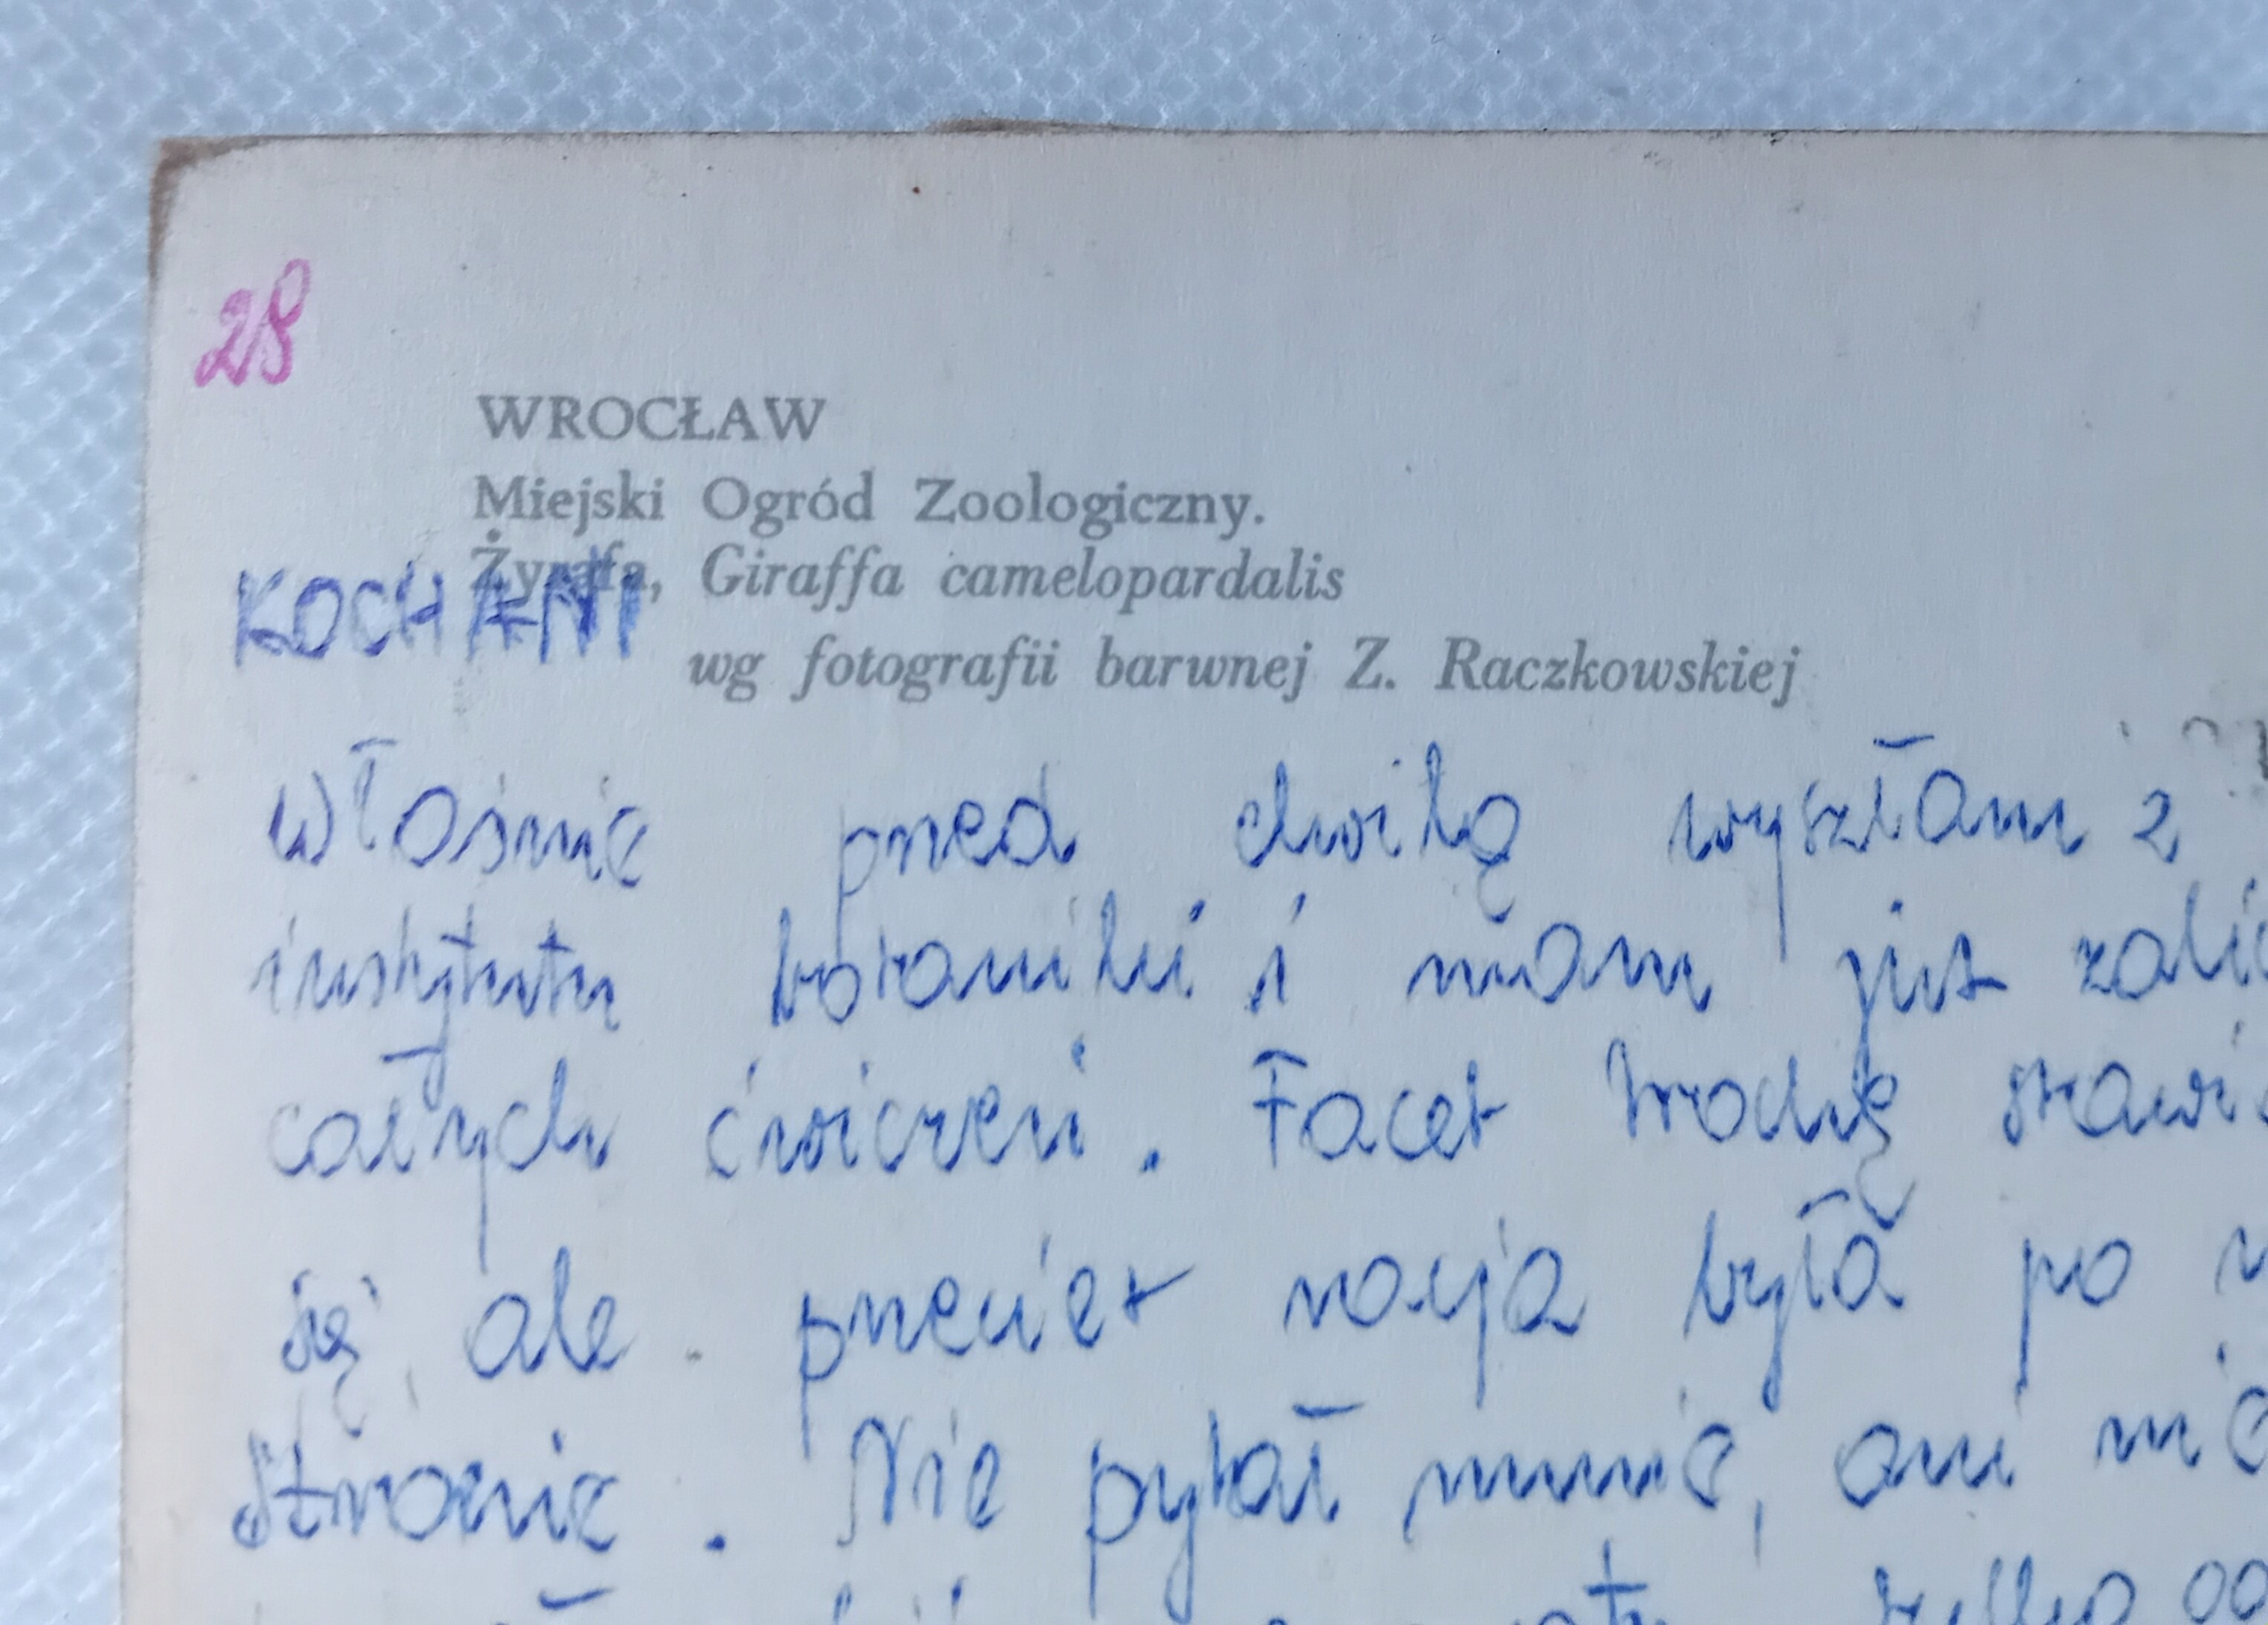 28
WROCŁAW
Miejski Ogród Zoologiczny.
Żyrafa, Giraffa camelopardalis
KOCHANI
wg fotografii barwnej Z. Raczkowskiej
Właśnie przed chwilą wyszłam z
instytutu botaniki i mam już
całych ćwiczeń. Facet trochę
się, ale przecież racja była po
stronie. Nie pytał mnie, ani